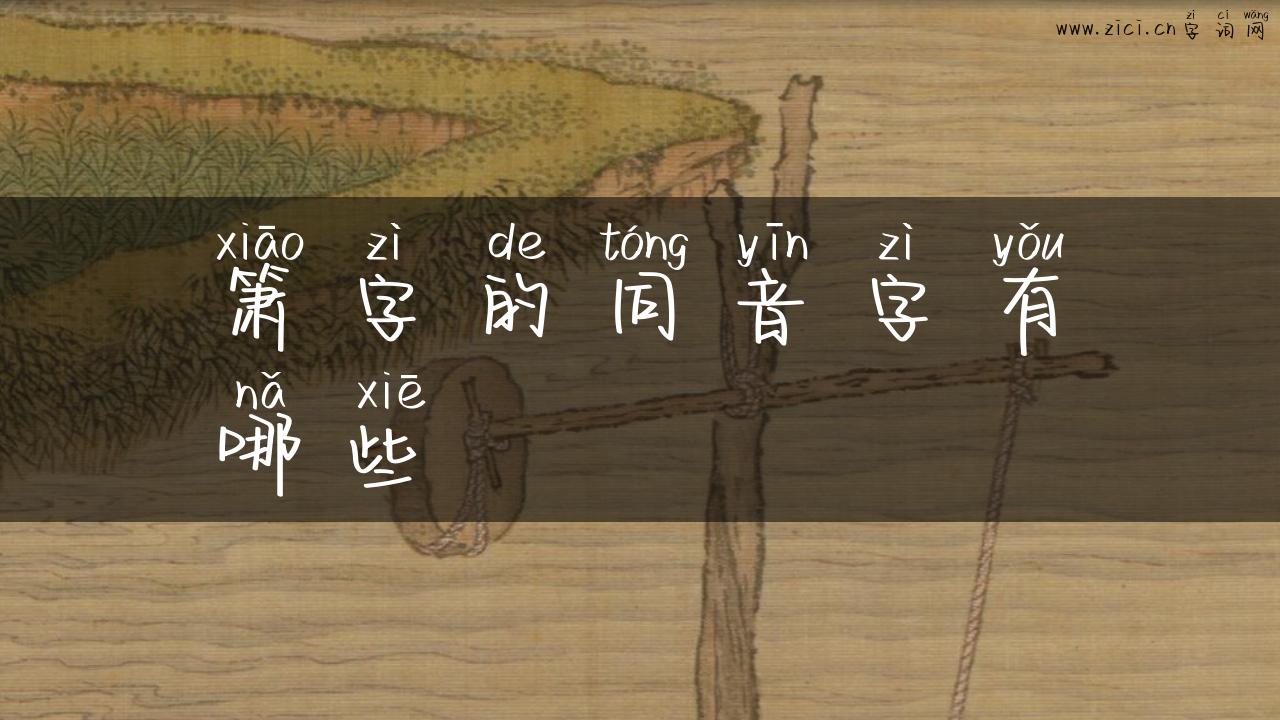 zì cí wǎng
www.zici.cn 字词网
xiāo zì de tóng yīn zì yǒu
箫字的同音字有
nǎ xiē
哪些